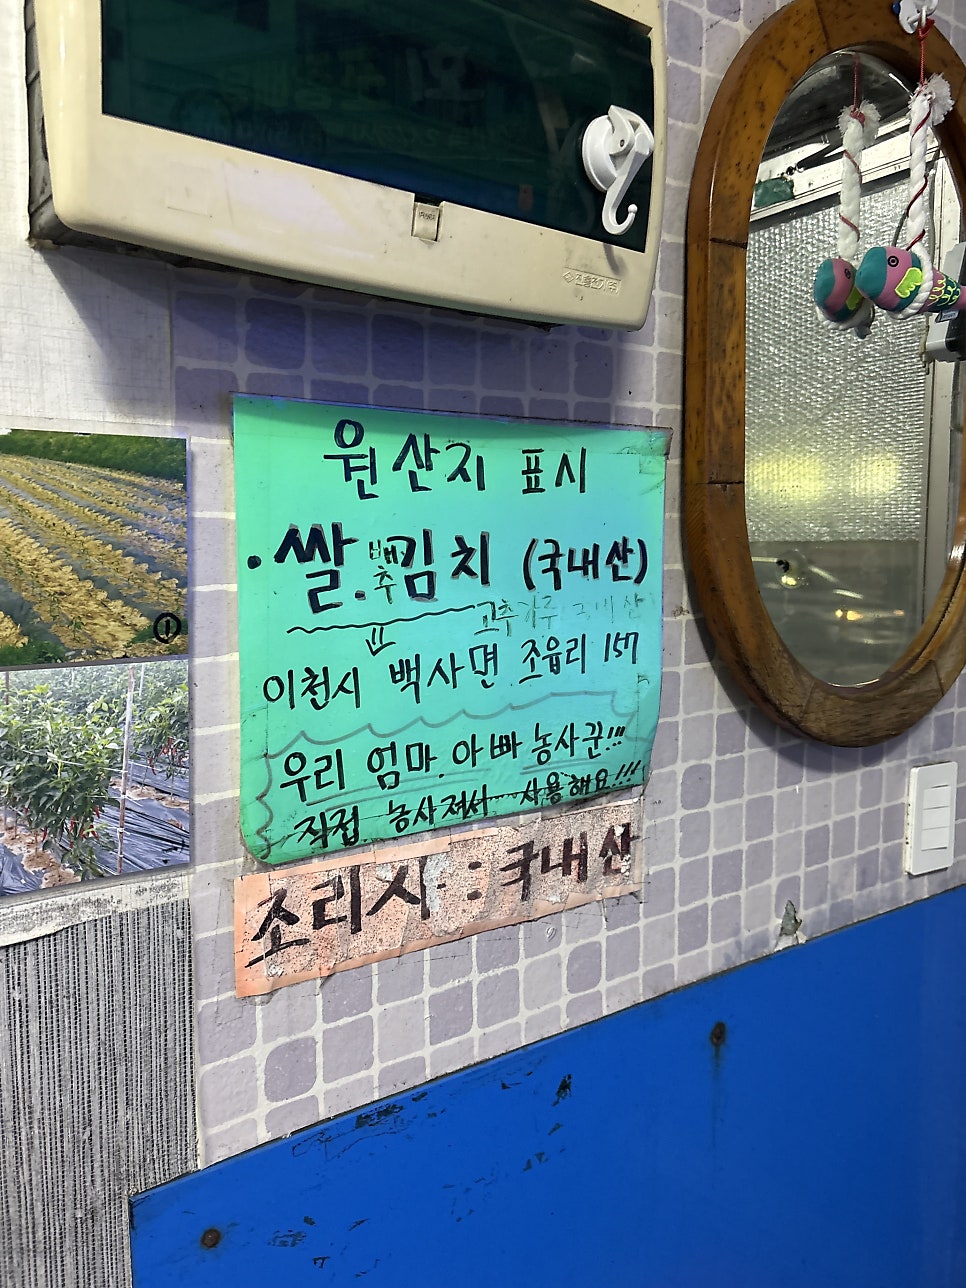 원산지 표시
·쌀.배추김치 (국내산)
고추가루 국내산
이천시 백사면 조읍리 157
우리 엄마.아빠 농사꾼!!!
직접 농사져서 사용해요!!!
조리사 : 국내산